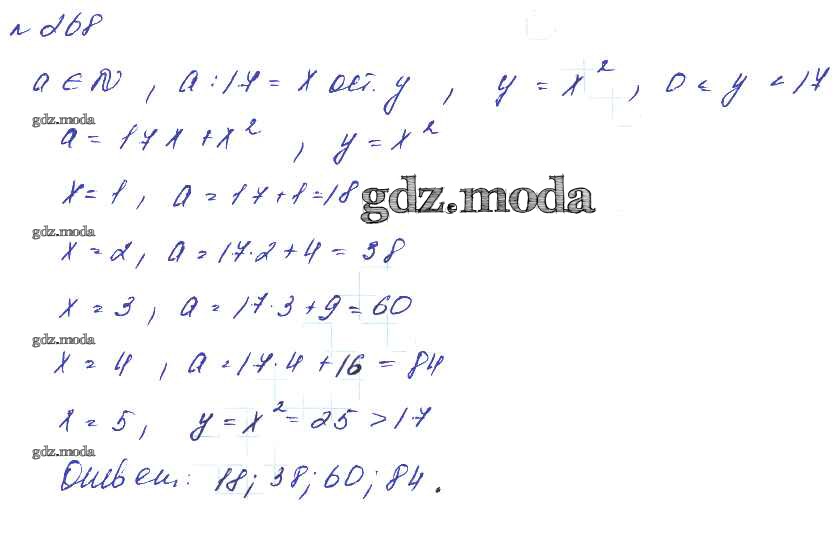 № 268
a ∈ N, a : 17 = x ост. y, y = x², 0 < y < 17
gdz.moda
a = 17x + x², y = x²
x = 1, a = 17 + 1 = 18
gdz.moda
gdz.moda
x = 2, a = 17·2 + 4 = 38
x = 3, a = 17·3 + 9 = 60
gdz.moda
x = 4, a = 17·4 + 16 = 84
x = 5, y = x² = 25 > 17
gdz.moda
Ответ: 18; 38; 60; 84.